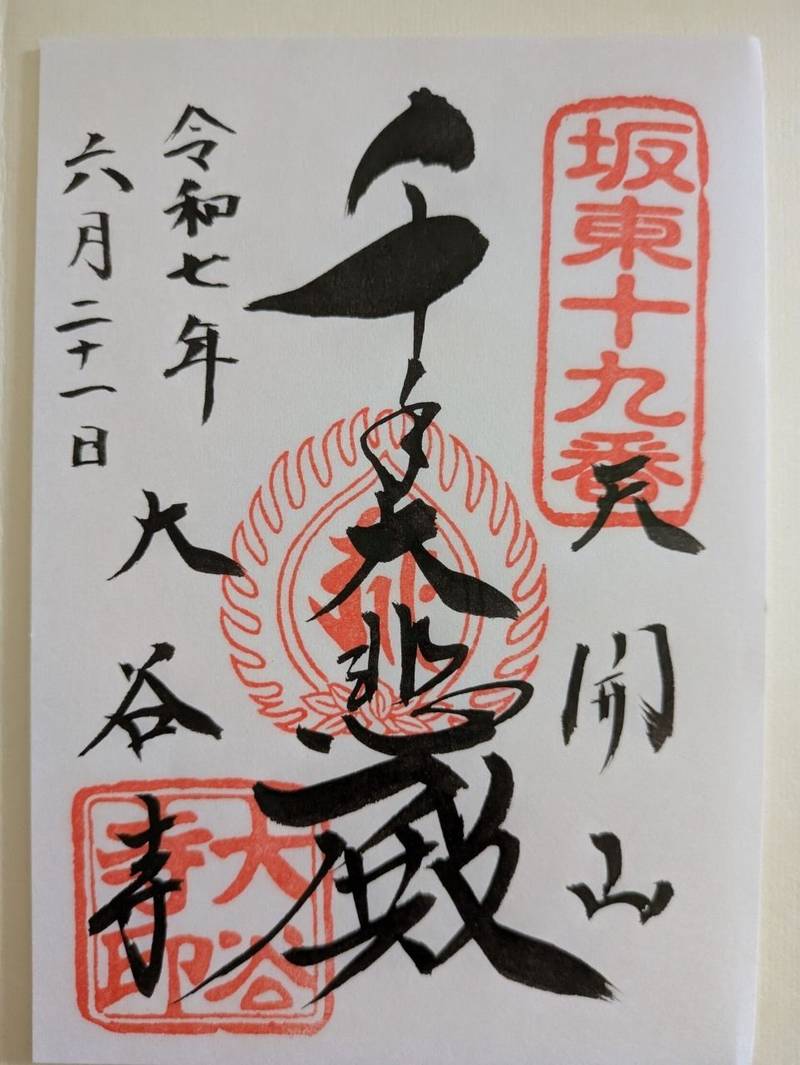 坂東十九番
天開山
千手大悲殿
令和七年
六月二十一日
大谷寺
大谷
寺印